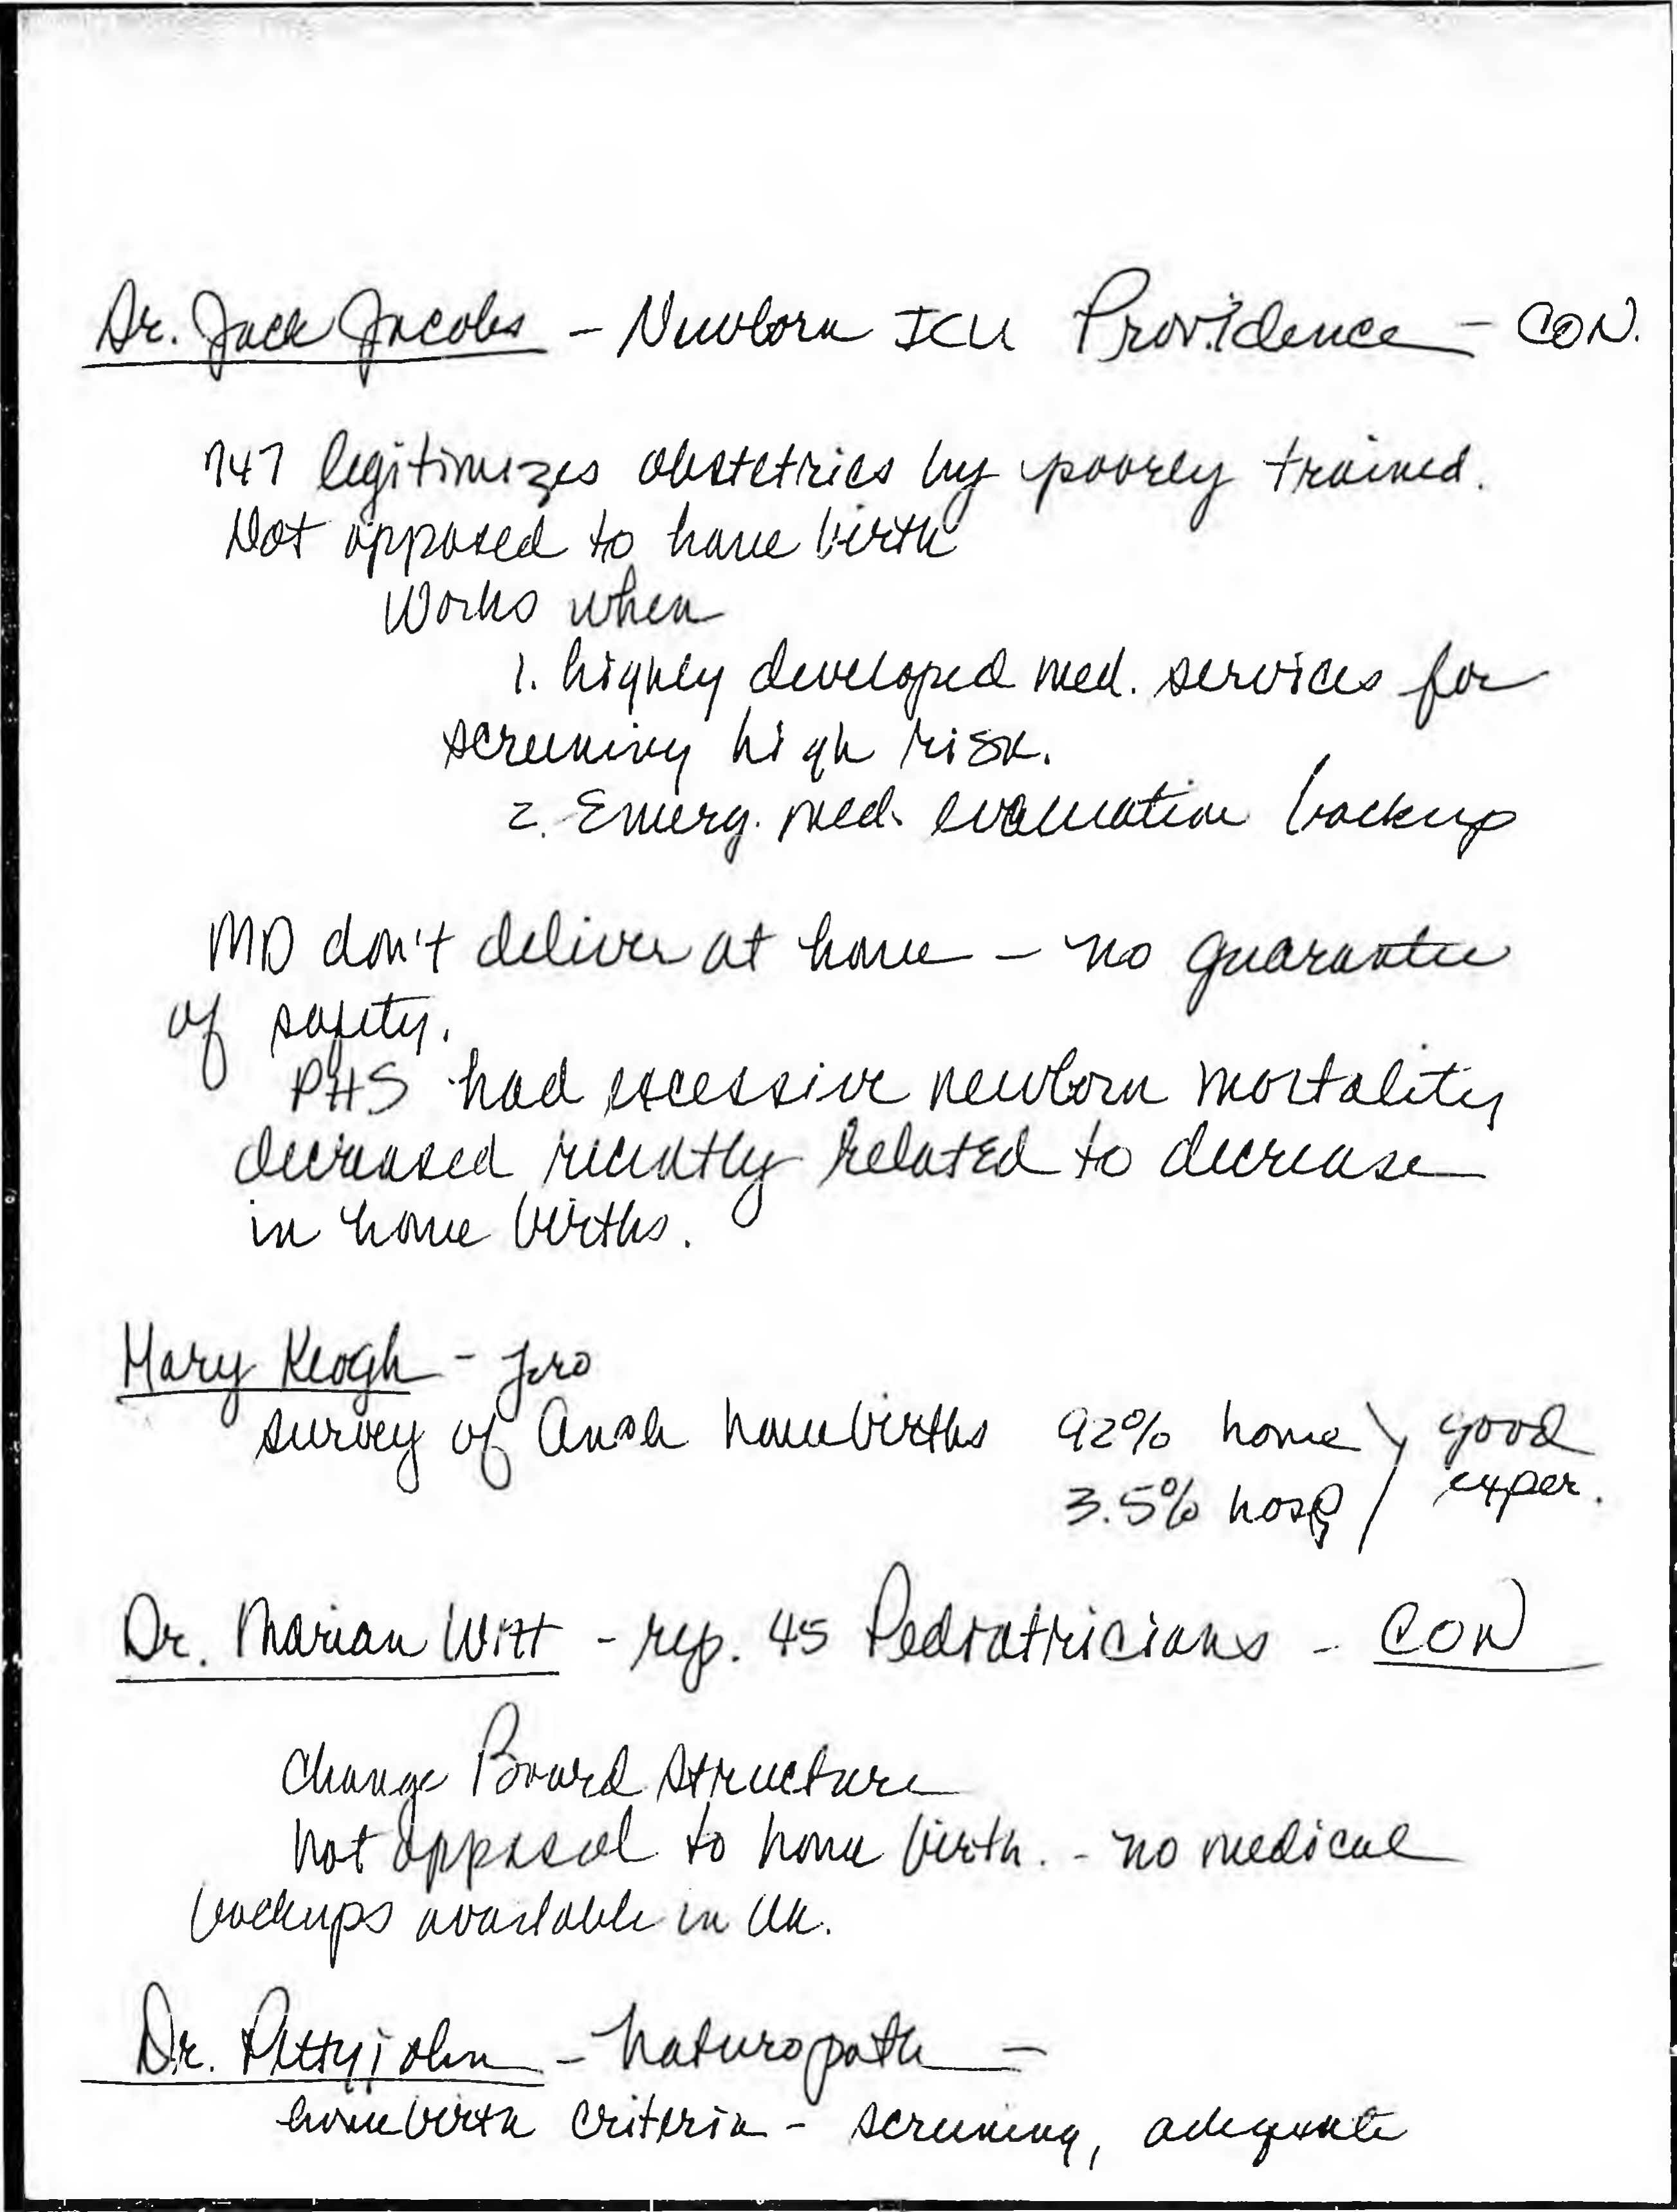 Dr. Jack Jacobs - Newborn ICU Providence - CON.
747 legitimizes obstetrics by poorly trained.
Not opposed to home birth
Works when
1. highly developed med. services for
screening high risk.
2. Emerg. med. evaluation backup
MD don't deliver at home - no guarantee
of safety.
PHS had excessive newborn mortality
decreased recently related to decrease
in home births.
Mary Keogh - pro
survey of Anch homebirths 92% home \ good
3.5% hosp / exper.
Dr. Marian Witt - rep. 45 Pediatricians - CON
Change Board structure
Not opposed to home birth. - no medical
backups available in Ak.
Dr. Pettyjohn - Naturopath -
homebirth criteria - screening, adequate